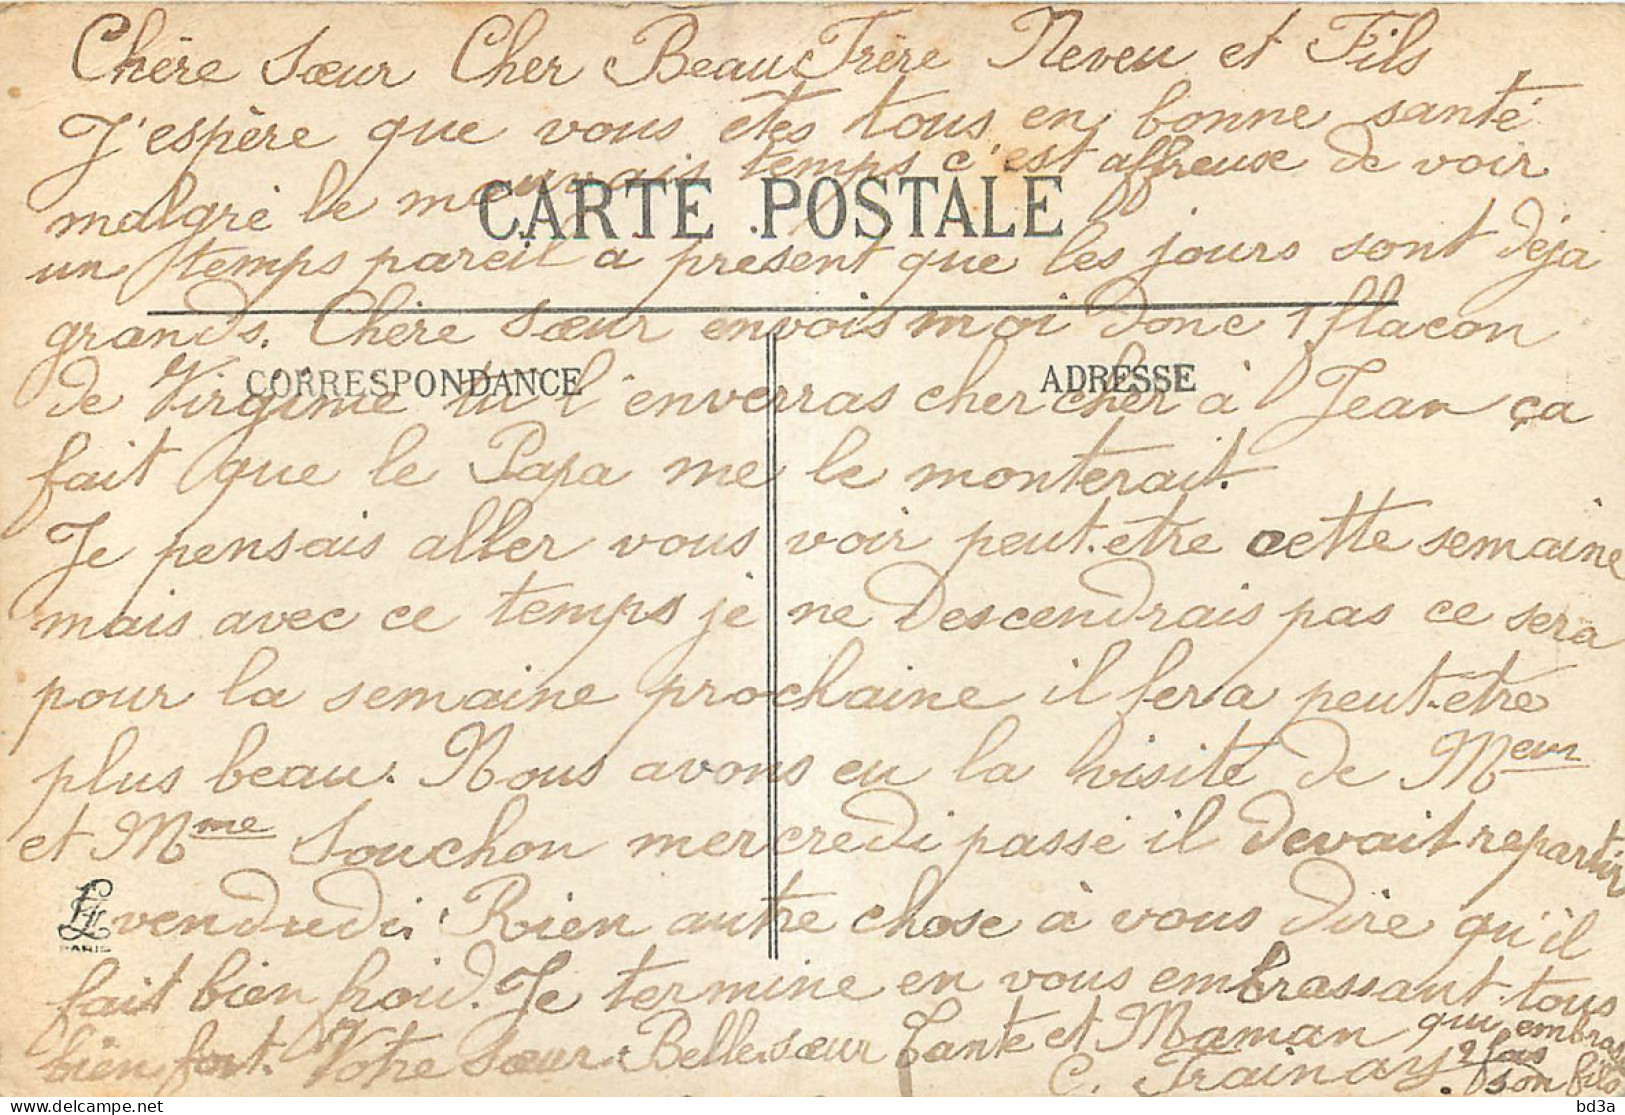 Chère Sœur Cher Beau Frère Neveu et Fils
J'espère que vous etes tous en bonne santé
malgré le mauvais temps c'est affreuse de voir
CARTE POSTALE
un temps pareil a présent que les jours sont déja
grands. Chère sœur envois moi donc 1 flacon
CORRESPONDANCE ADRESSE
de Virginie tu l'enverras chercher à Jean ça
fait que le Papa me le monterait.
Je pensais aller vous voir peut-etre cette semaine
mais avec ce temps je ne descendrais pas ce sera
pour la semaine prochaine il fera peut-etre
plus beau. Nous avons eu la visite de Meur
et Mme Souchon mercredi passé il devait repartir
vendredi. Rien autre chose à vous dire qu'il
PARIS
fait bien froid. Je termine en vous embrassant tous
bien fort. Votre sœur Belle sœur Tante et Maman qui embrasse
C. Trainay. 2 fois
son fils
bd3a